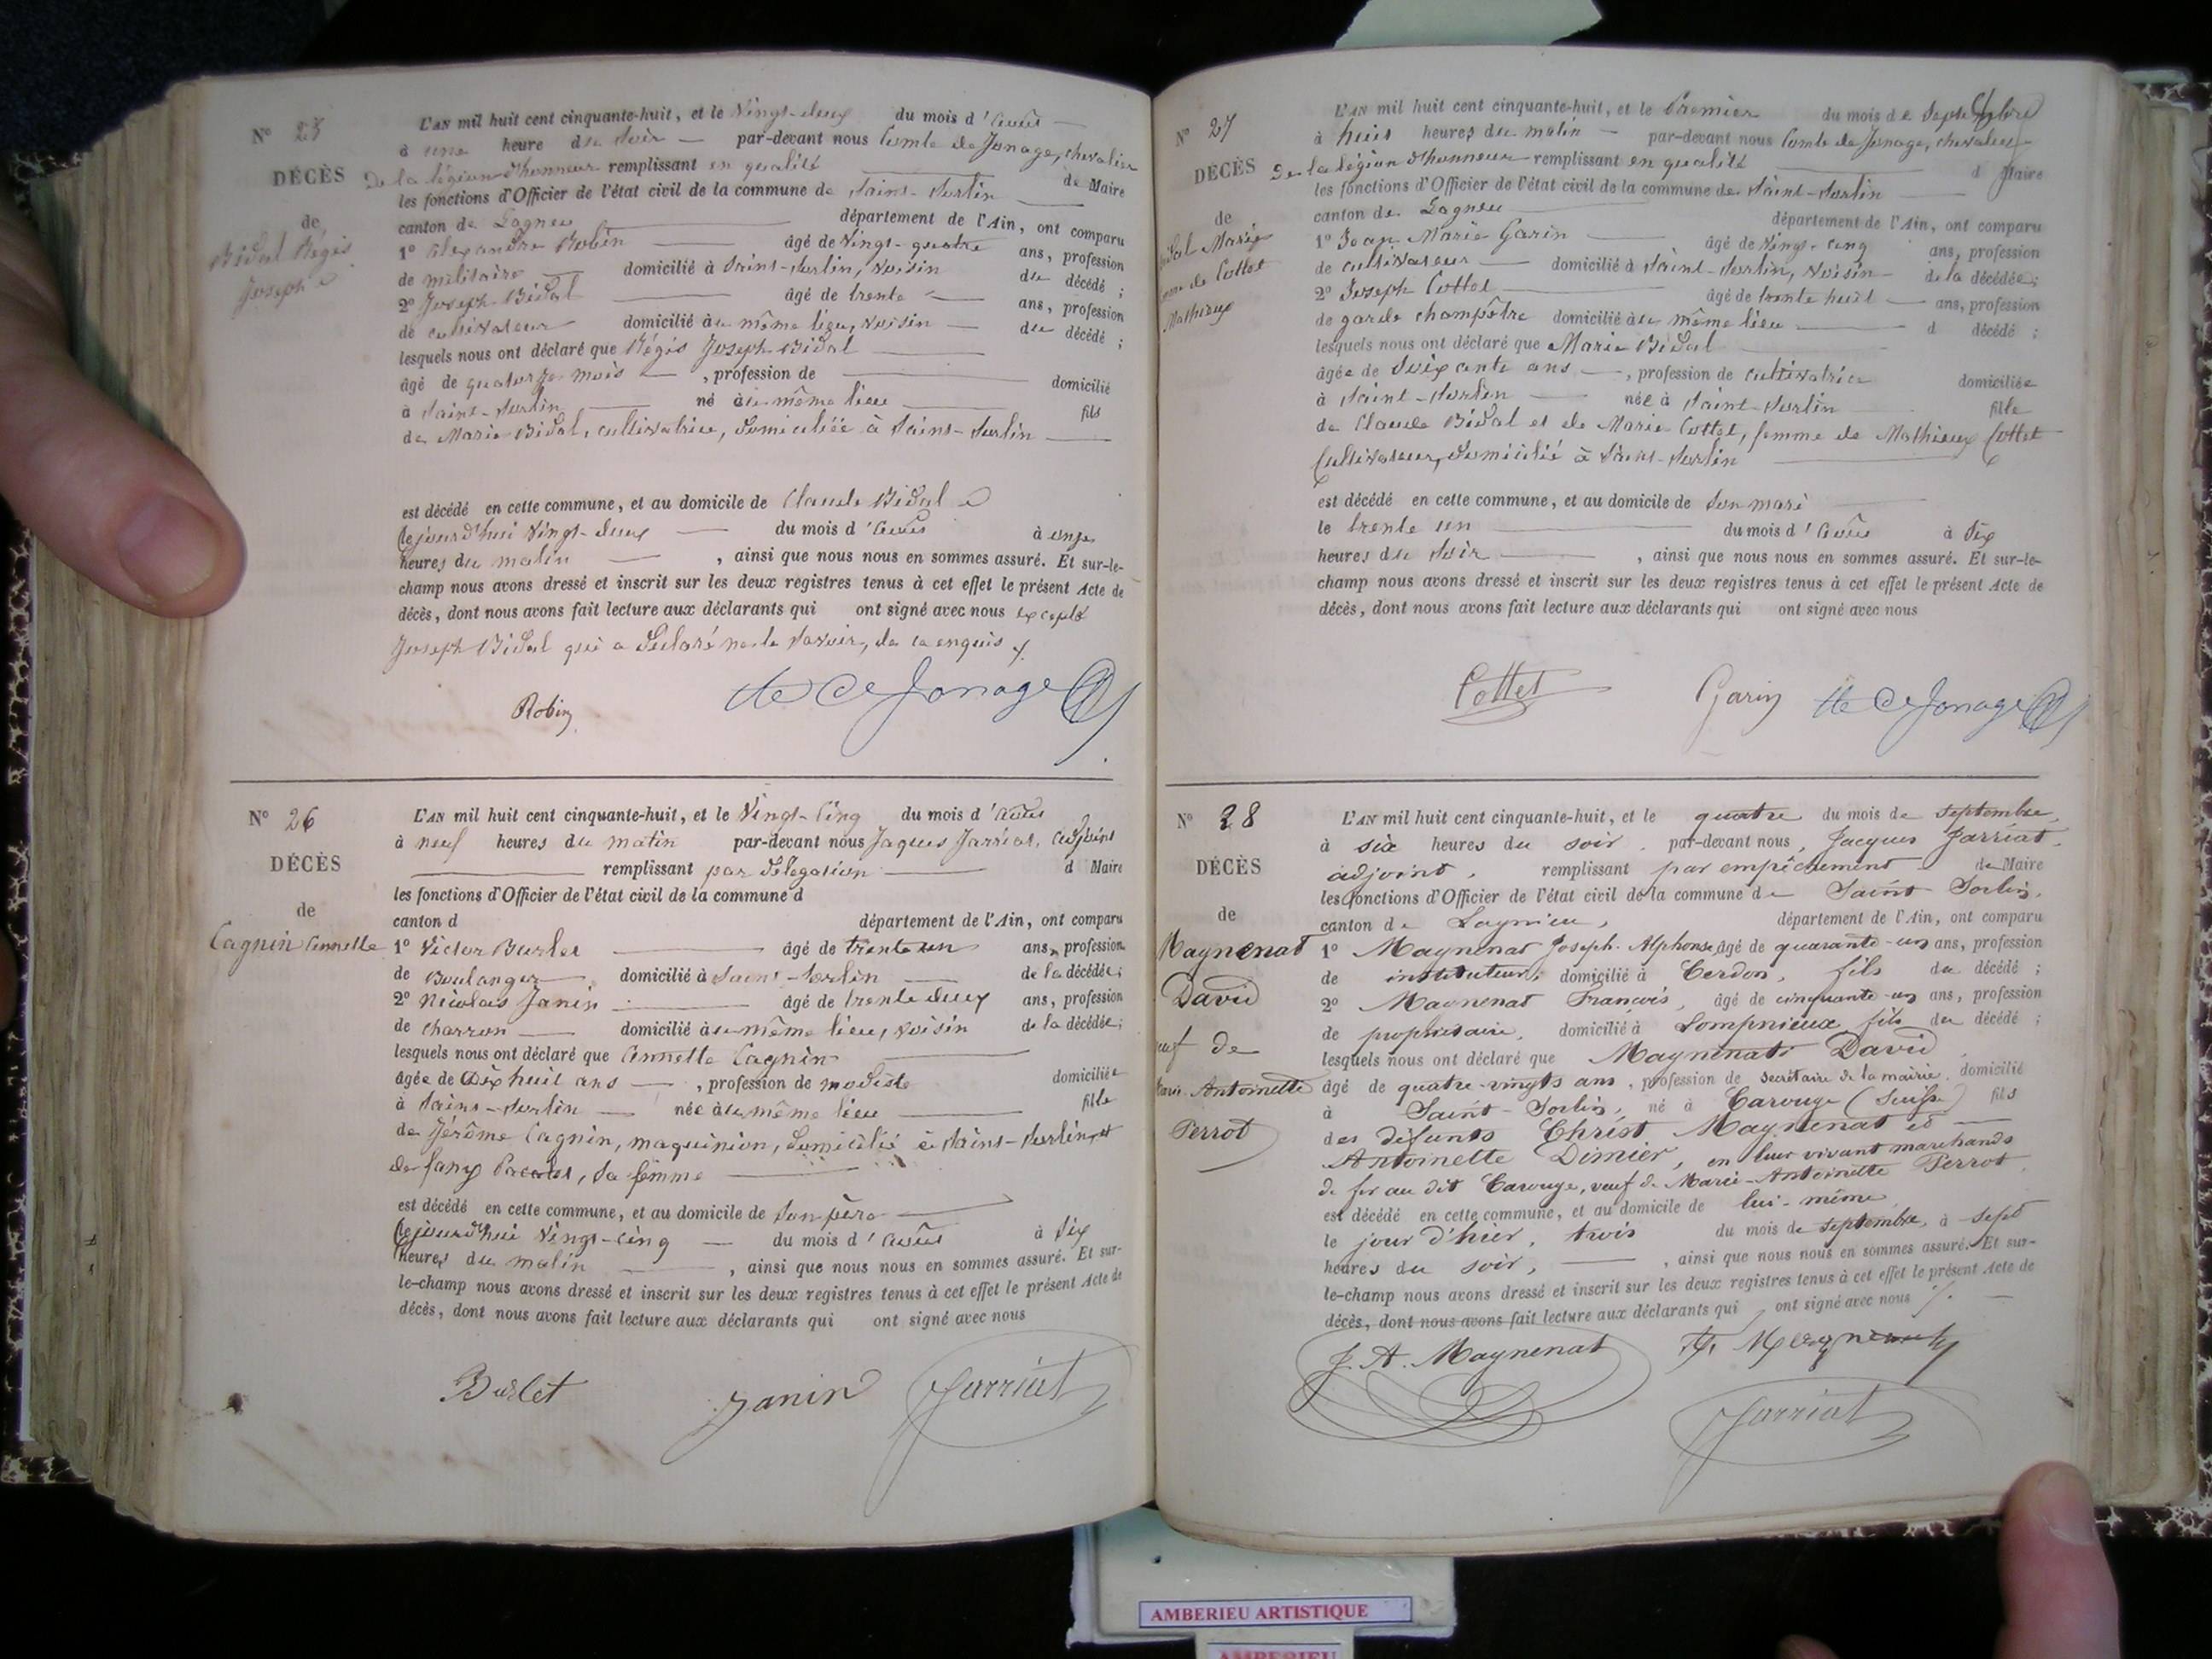 N° 25
DÉCÈS
de
Bidal Régis
Joseph
L'AN mil huit cent cinquante-huit, et le Vingt-deux du mois d'Août
à une heure du soir par-devant nous Comte de Jonage, chevalier
De la légion d'honneur remplissant en qualité de Maire
les fonctions d'Officier de l'état civil de la commune de Saint-Sorlin
canton de Lagneu département de l'Ain, ont comparu
1° Alexandre Robin âgé de Vingt-quatre ans, profession
de militaire domicilié à Saint-Sorlin, voisin du décédé ;
2° Joseph Bidal âgé de trente ans, profession
de cultivateur domicilié au même lieu, voisin du décédé ;
lesquels nous ont déclaré que Régis Joseph Bidal
âgé de quatorze mois , profession de domicilié
à Saint-Sorlin né au même lieu fils
de Marie Bidal, cultivatrice, domiciliée à Saint-Sorlin
est décédé en cette commune, et au domicile de Claude Bidal
lejourd'hui Vingt-deux du mois d'Août à onze
heures du matin , ainsi que nous nous en sommes assuré. Et sur-le-
champ nous avons dressé et inscrit sur les deux registres tenus à cet effet le présent Acte de
décès, dont nous avons fait lecture aux déclarants qui ont signé avec nous excepté
Joseph Bidal qui a déclaré ne le savoir, de ce enquis
Robin
de Jonage
N° 26
DÉCÈS
de
Cagnin Annette
L'AN mil huit cent cinquante-huit, et le Vingt-Cinq du mois d'Août
à neuf heures du matin par-devant nous Jaques Jarriat, Adjoint
remplissant par délégation d Maire
les fonctions d'Officier de l'état civil de la commune d
canton d département de l'Ain, ont comparu
1° Victor Burlet âgé de trente un ans, profession
de Boulanger domicilié à Saint-Sorlin de la décédée ;
2° Nicolas Janin âgé de trente deux ans, profession
de charron domicilié au même lieu, voisin de la décédée ;
lesquels nous ont déclaré que Annette Cagnin
âgée de Dix huit ans , profession de modiste domiciliée
à Saint-Sorlin née au même lieu fille
de Jérôme Cagnin, maquinion, domicilié à Saint-Sorlin, et
de fany , sa femme
est décédé en cette commune, et au domicile de son père
lejourd'hui Vingt-cinq du mois d'Août à six
heures du matin , ainsi que nous nous en sommes assuré. Et sur-
le-champ nous avons dressé et inscrit sur les deux registres tenus à cet effet le présent Acte de
décès, dont nous avons fait lecture aux déclarants qui ont signé avec nous
Burlet Janin Jarriat
N° 27
DÉCÈS
de
Bidal Marie
femme de Cottet
Mathieux
L'AN mil huit cent cinquante-huit, et le Premier du mois de Septembre
à huit heures du matin par-devant nous Comte de Jonage, chevalier
De la légion d'honneur remplissant en qualité d Maire
les fonctions d'Officier de l'état civil de la commune de Saint-Sorlin
canton de Lagneu département de l'Ain, ont comparu
1° Jean Marie Garin âgé de Vingt-cinq ans, profession
de cultivateur domicilié à Saint-Sorlin, voisin de la décédée ;
2° Joseph Cottet âgé de trente huit ans, profession
de garde champêtre domicilié au même lieu d décédé ;
lesquels nous ont déclaré que Marie Bidal
âgée de Soixante ans , profession de cultivatrice domiciliée
à Saint-Sorlin née à Saint-Sorlin fille
de Claude Bidal et de Marie Cottet, femme de Mathieux Cottet
Cultivateur, domicilié à Saint-Sorlin
est décédé en cette commune, et au domicile de son mari
le trente un du mois d'Août à dix
heures du soir , ainsi que nous nous en sommes assuré. Et sur-le-
champ nous avons dressé et inscrit sur les deux registres tenus à cet effet le présent Acte de
décès, dont nous avons fait lecture aux déclarants qui ont signé avec nous
Cottet Garin de Jonage
N° 28
DÉCÈS
de
Magnenat
David
veuf de
Marie Antoinette
Perrot
L'AN mil huit cent cinquante-huit, et le quatre du mois de septembre,
à six heures du soir, par-devant nous, Jacques Jarriat,
adjoint, remplissant par empêchement de Maire
les fonctions d'Officier de l'état civil de la commune de Saint-Sorlin,
canton de Lagnieu, département de l'Ain, ont comparu
1° Magnenat Joseph-Alphonse, âgé de quarante-un ans, profession
de instituteur, domicilié à Cerdon, fils du décédé ;
2° Magnenat François, âgé de cinquante-un ans, profession
de propriétaire, domicilié à Lompnieux, fils du décédé ;
lesquels nous ont déclaré que Magnenat David,
âgé de quatre-vingts ans, profession de secrétaire de la mairie, domicilié
à Saint-Sorlin, né à Carouge (Suisse) fils
des défunts Christ Magnenat et
Antoinette Dimier, en leur vivant marchands
de fer au dit Carouge, veuf de Marie-Antoinette Perrot,
est décédé en cette commune, et au domicile de lui-même
le jour d'hier, trois du mois de septembre, à sept
heures du soir, , ainsi que nous nous en sommes assuré. Et sur-
le-champ nous avons dressé et inscrit sur les deux registres tenus à cet effet le présent Acte de
décès, dont nous avons fait lecture aux déclarants qui ont signé avec nous
J. A. Magnenat F. Magnenat
Jarriat
AMBERIEU ARTISTIQUE
AMBERIEU